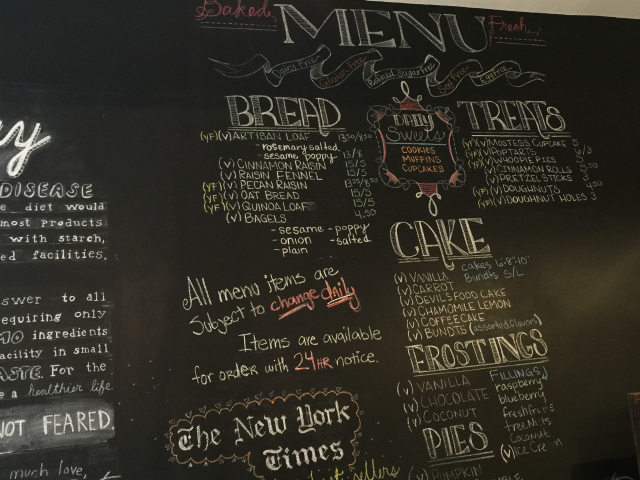 Baked Fresh
MENU
Dairy Free Gluten Free Refined Sugar Free Soy Free Egg Free
BREAD
(YF)(V) ARTISAN LOAF 13.50/8.50
- rosemary salted
- sesame poppy 13/8
(V) CINNAMON RAISIN 15/5
(V) RAISIN FENNEL 15/5
(YF)(V) PECAN RAISIN
(YF)(V) OAT BREAD 15/5
(YF)(V) QUINOA LOAF 15/5
(V) BAGELS 4.50
- sesame - poppy
- onion - salted
- plain
DAILY
Sweets
COOKIES
MUFFINS
CUPCAKES
TREATS
(YF)(V) MOSTESS CUPCAKE 5
POPTARTS
(V) WHOOPIE PIES 5
CINNAMON ROLLS
(V) PRETZEL STICKS
(YF)(V) DOUGHNUTS 4.50
(YF)(V) DOUGHNUT HOLES 3
CAKE
cakes 6" 8" 10"
Bundts S/L
(V) VANILLA
(V) CARROT
(V) DEVILS FOOD CAKE
(V) CHAMOMILE LEMON
(V) COFFEE CAKE
(V) BUNDTS (assorted flavors)
FROSTINGS
(V) VANILLA
(V) CHOCOLATE
(V) COCONUT
FILLINGS
raspberry
blueberry
coconut
PIES
(V) PUMPKIN
All menu items are
Subject to change daily
Items are available
for order with 24HR notice.
The New York
Times
DISEASE
diet would
most products
with starch,
facilities.
to all
requiring only
ingredients
facility in small
For the
a healthier life
NOT FEARED.
much love,